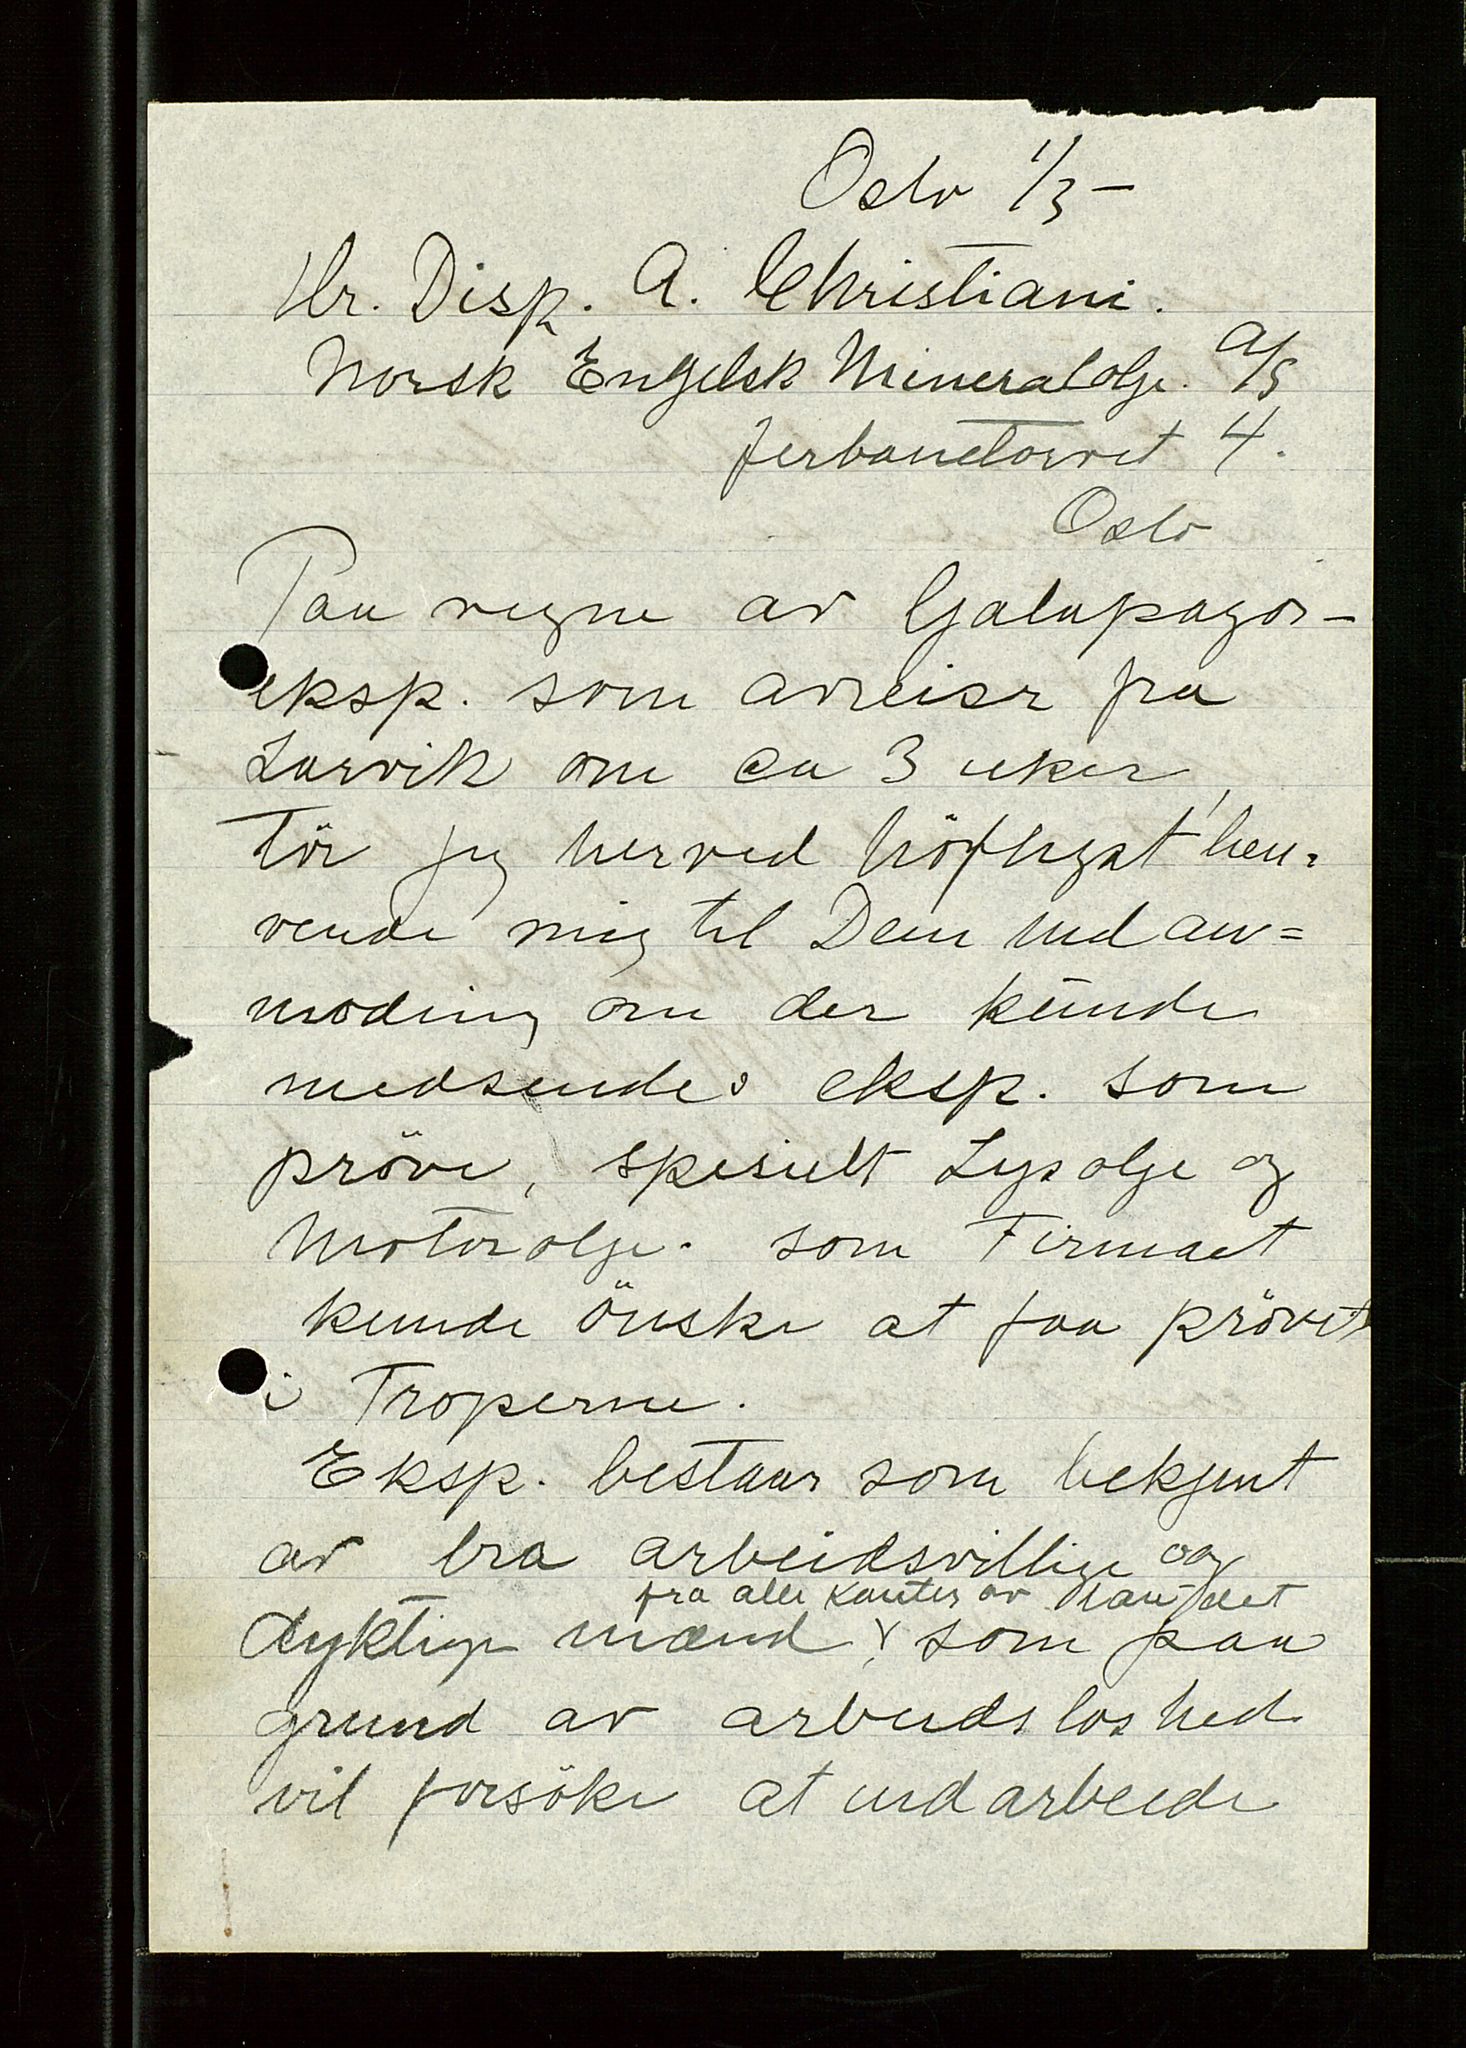 Oslo 1/3 –
Hr. Disp. A. Christiani.
Norsk Engelsk Mineralolje. A/S
Jerbanetorvet 4.
Oslo
Paa vegne av Galapagos-
eksp. som avreiser fra
Larvik om ca 3 uker,
tör jeg herved höfligst hen-
vende mig til Dem med an=
moding om der kunde
medsendes eksp. som
pröve, spesielt Lysolje og
Motorolje. som Firmaet
kunde önske at faa prövet
i Troperne.
Eksp. bestaar som bekjent
av bra arbeidsvillige og
fra alle kanter av landet
dyktige mænd, som paa
grund av arbeidsloshed
vil forsöke at udarbeide